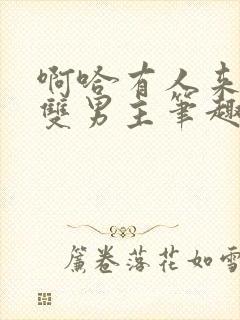 啊哈有人来
雙男主筆趣
簾卷落花如雪